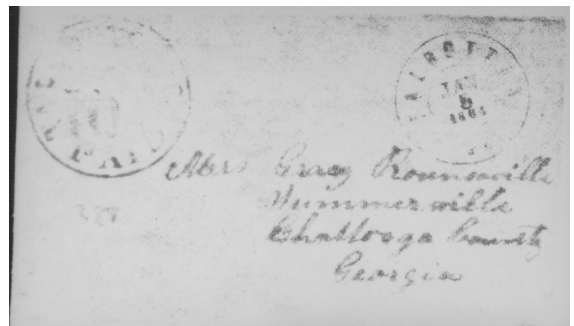 PAID
10
JAN
5
1861
Mrs Gracy Rounsaville
Summerville
Chattooga County
Georgia
328